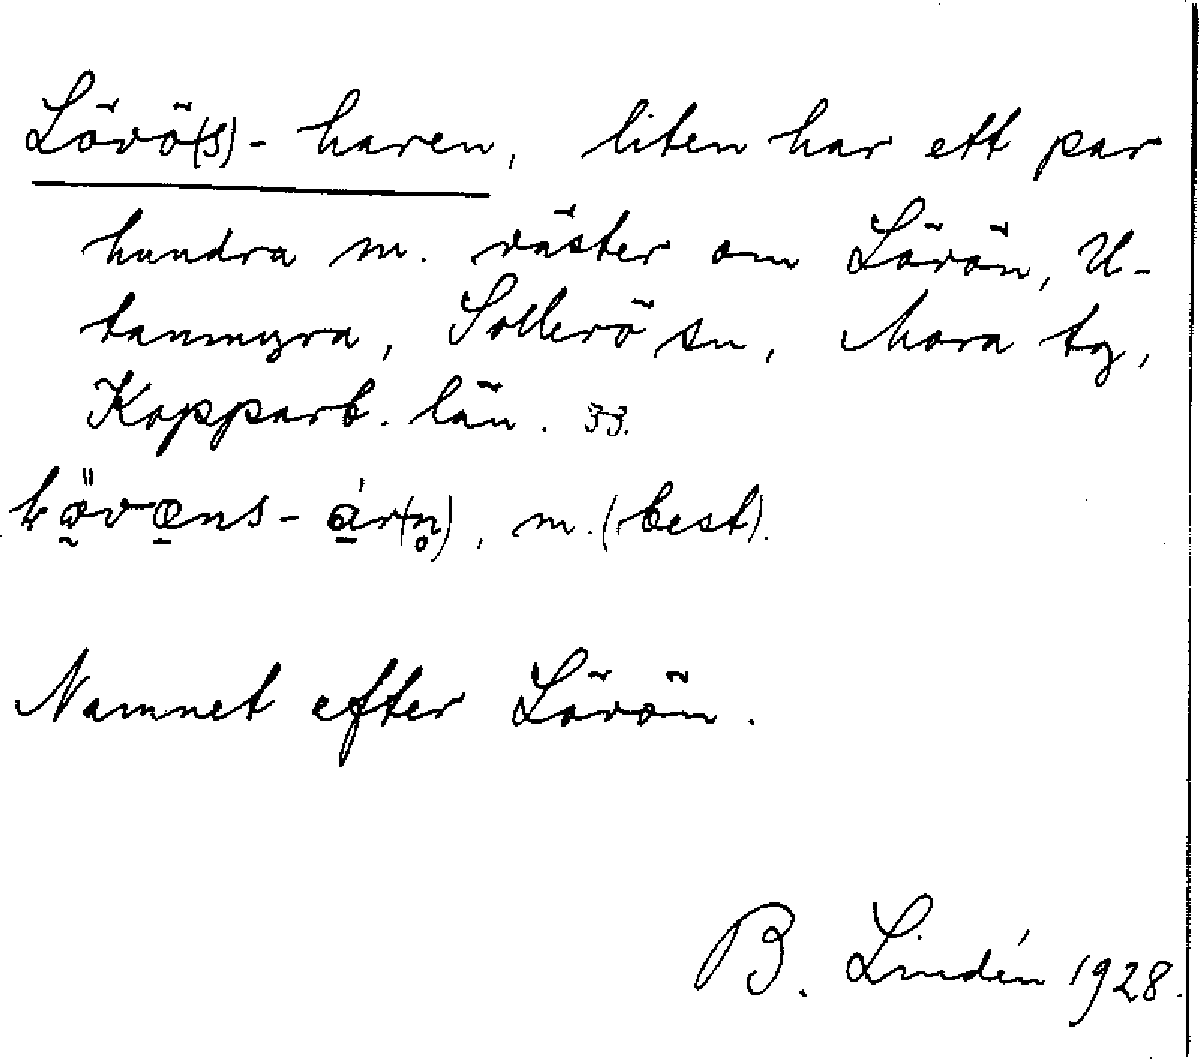 Lövö(s)-haren, liten har ett par
hundra m. väster om Lövön, U-
tanmyra, Sollerö sn, Mora tg,
Kopparb. län. 33.
m. (best).
Namnet efter Lövön.
B. Lindén 1928.